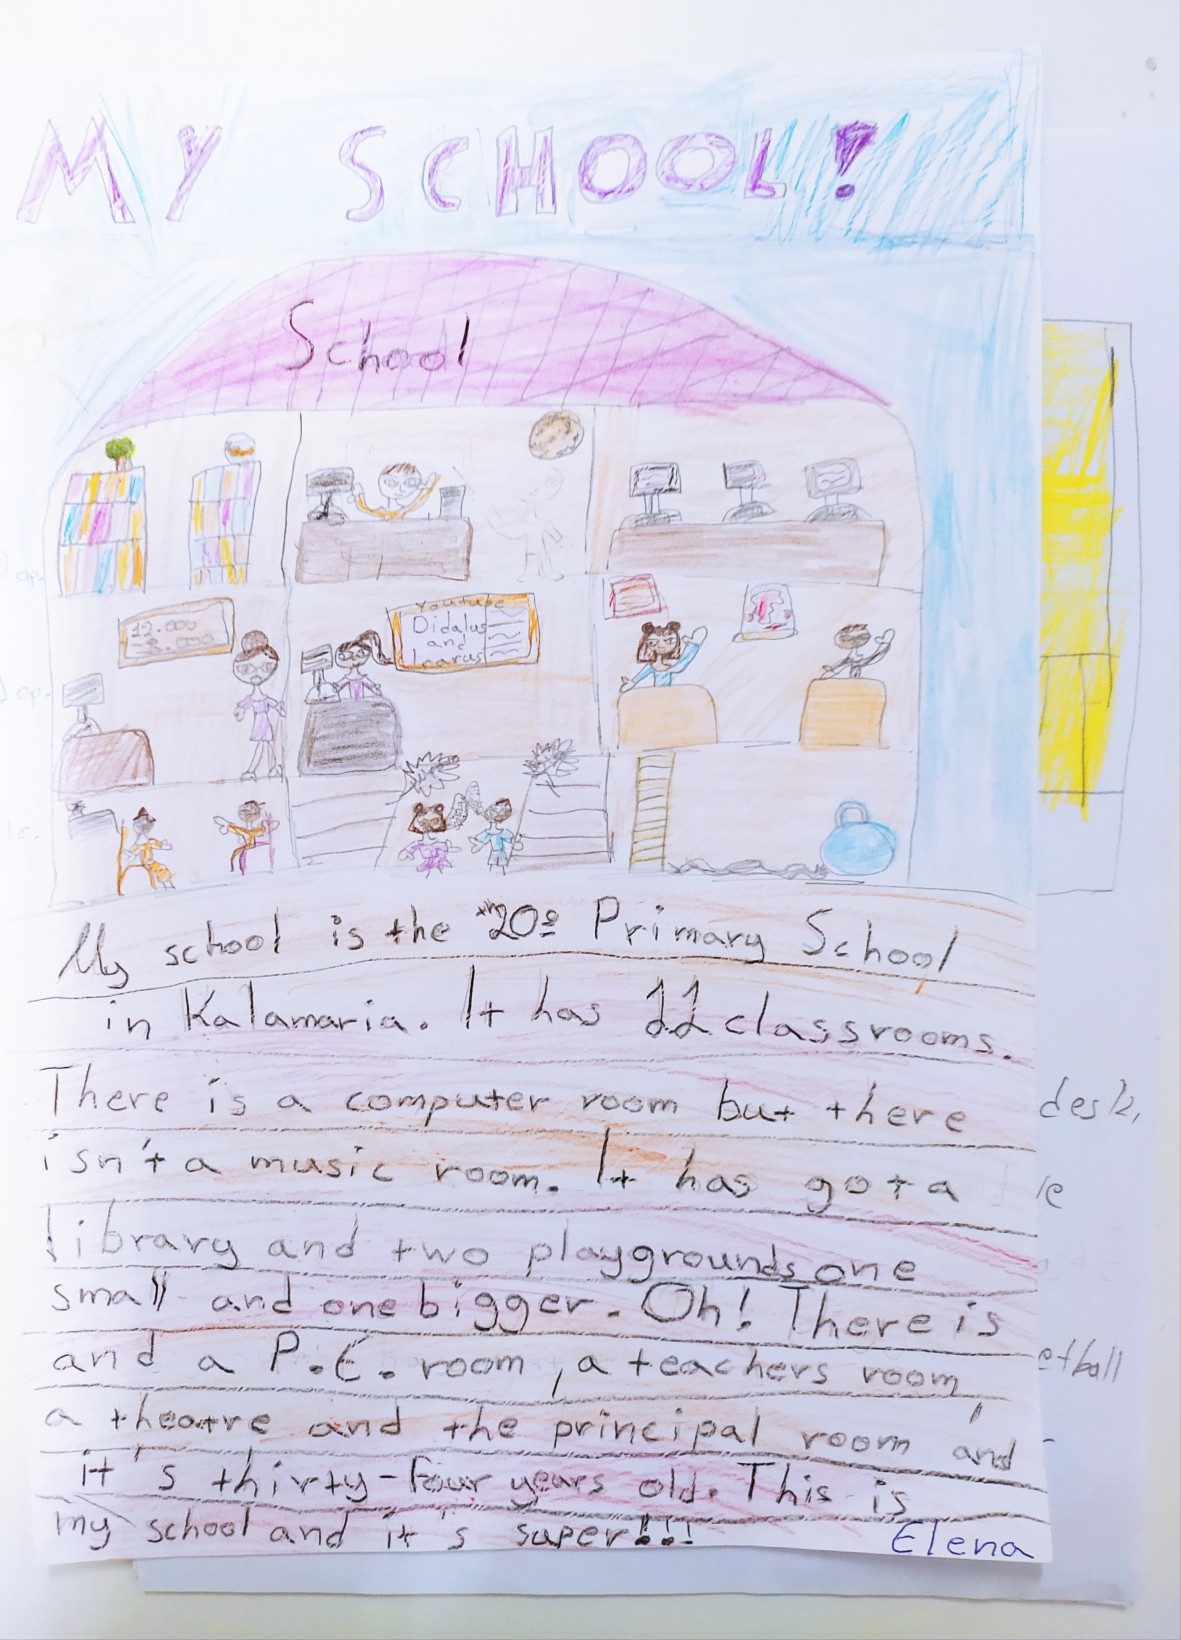 MY SCHOOL!
School
12.000
-8.000
Youtube
Didalus
and
Icarus
My school is the th20º Primary School
in Kalamaria. It has 11 classrooms.
There is a computer room but there
isn't a music room. It has got a
library and two playgrounds one
small and one bigger. Oh! There is
and a P.E. room, a teachers room,
a theatre and the principal room and
it's thirty-four years old. This is
my school and it's super!!!
Elena
desk,
etball